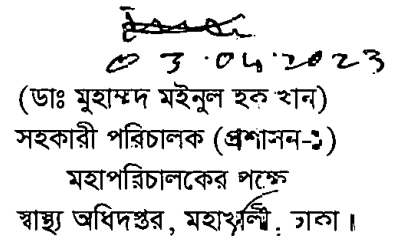 03.04.2023
(ডাঃ মুহাম্মদ মইনুল হক খান)
সহকারী পরিচালক (প্রশাসন-১)
মহাপরিচালকের পক্ষে
স্বাস্থ্য অধিদপ্তর, মহাখালী, ঢাকা।